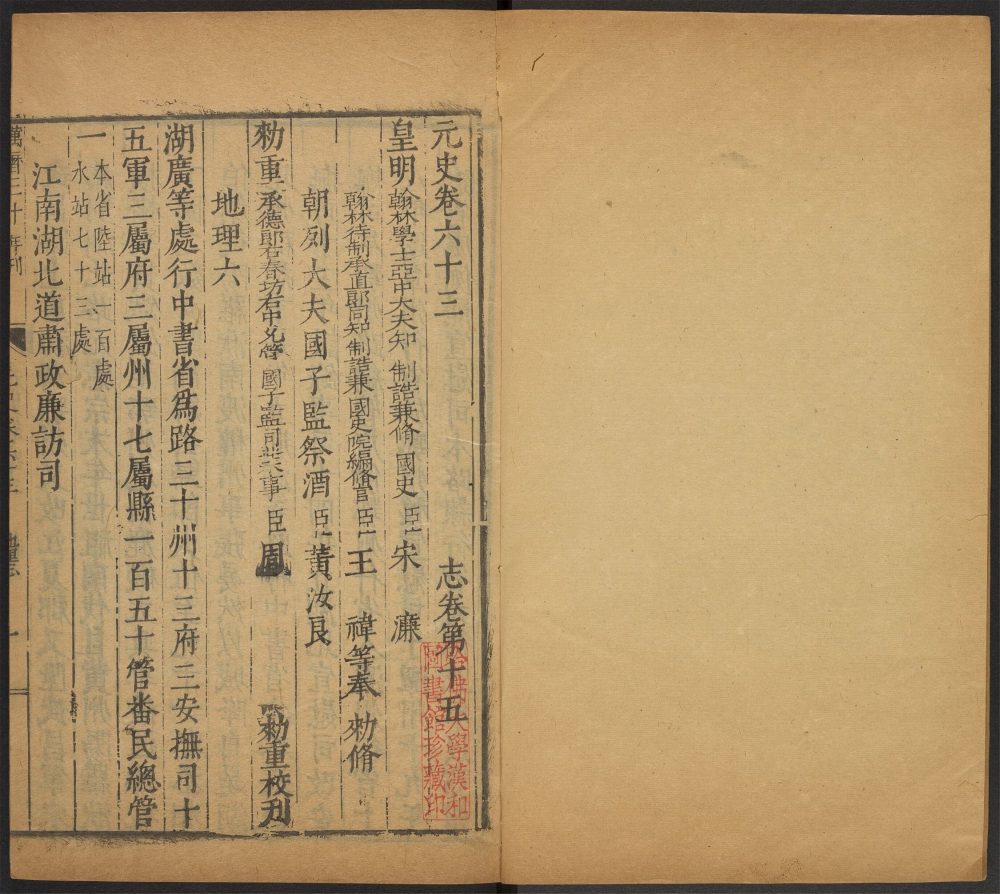 元史卷六十三 志卷第十五
皇明翰林學士亞中大夫知 制誥兼脩 國史 臣 宋 濂
翰林待制承直郎同知 制誥兼 國史院編脩官 臣 王 禕等奉 勑脩
朝列大夫國子監祭酒 臣 黃汝良
勑重校刋
承德郎右春坊右中允管 國子監司業事 臣
地理六
湖廣等處行中書省爲路三十州十三府三安撫司十
五軍三屬府三屬州十七屬縣一百五十管番民總管
一
本省陸站一百處
水站七十三處
江南湖北道肅政廉訪司
萬曆三十 年刊
哈佛大學漢和
圖書館珍藏印